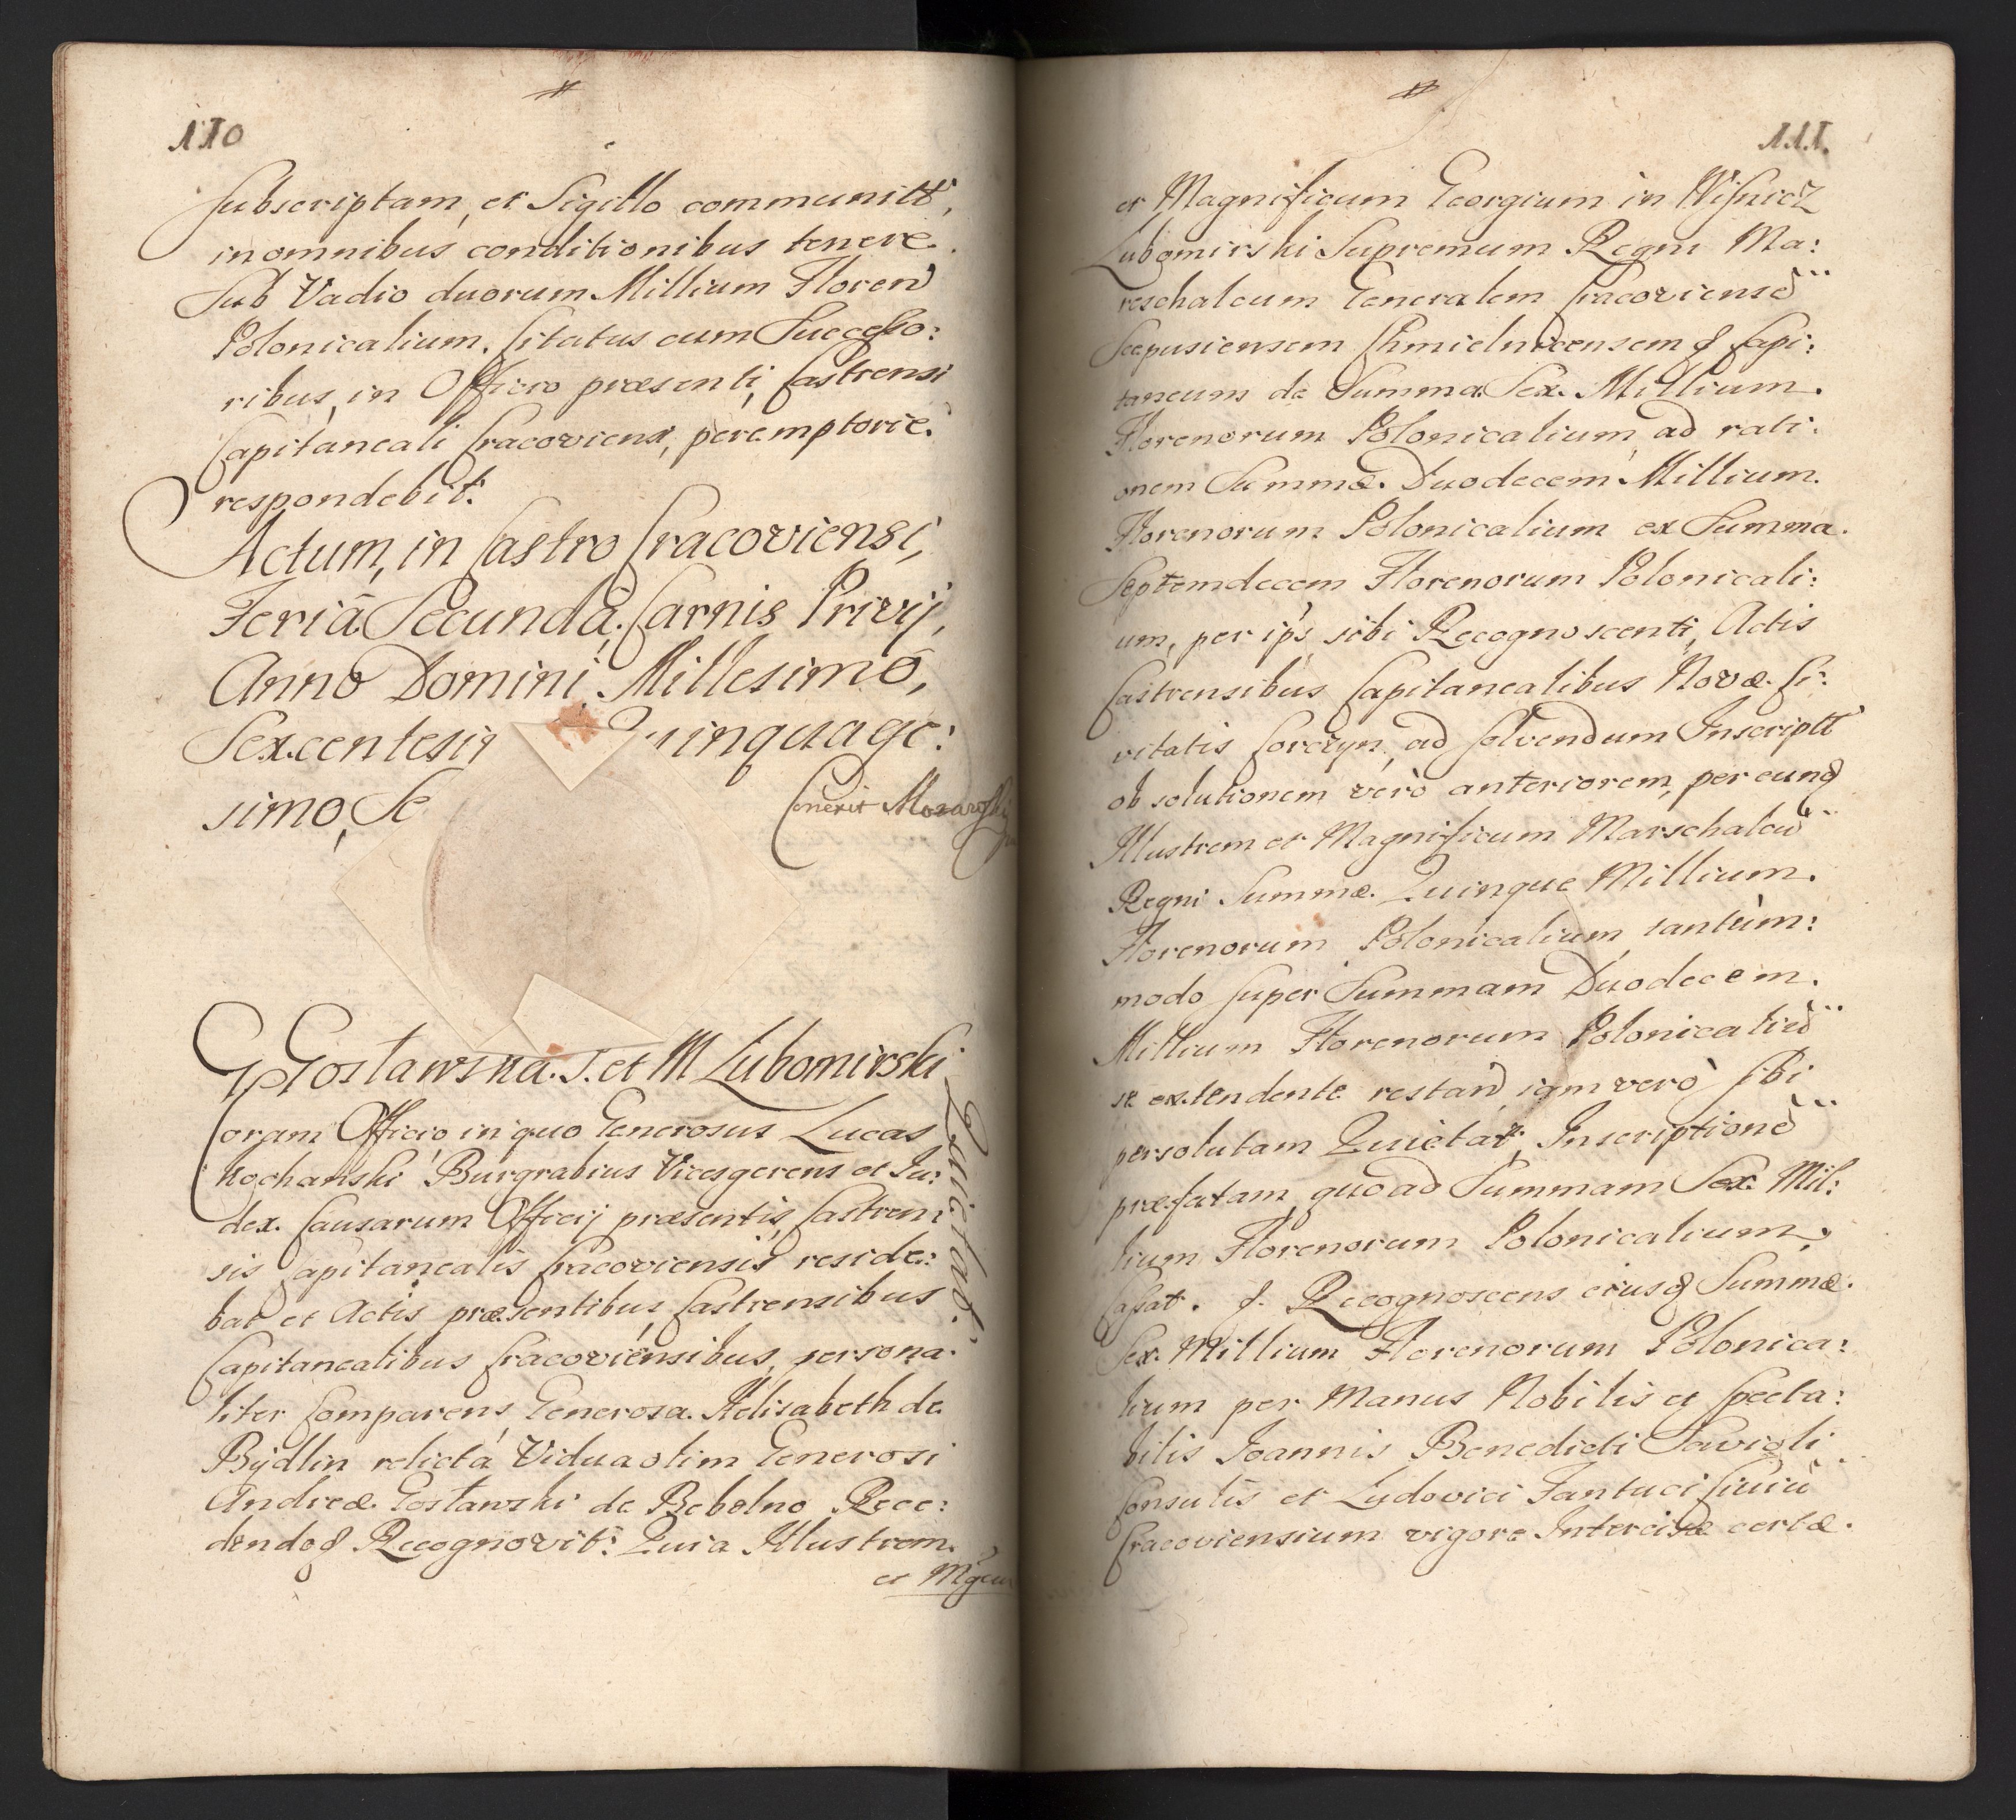 110
subscriptam, et Sigillo communitt,
in omnibus conditionibus tenere.
Sub Vadio duorum Millium Floren
Polonicalium. Citatus cum Successo:
ribus, in Officio præsenti, Castrensi
Capitaneali Cracoviens, peremptorie.
respondebit.
Actum, in Castro Cracoviensi,
Feriâ Secundâ, Carnis Privij,
Anno Domini Millesimo,
Sexcentesi Quinquage:
simo, Se
Conexit
G Gostawska. I. et M Lubomirski
Quietat.
Coram Officio, in quo Generosus Lucas
Kochanski Burgrabius Vicesgerens et Iu:
dex. Causarum Officij præsentis, Castren:
sis Capitanealis Cracoviensis reside:
bat et Actis præsentibus, Castrensibus
Capitanealibus Cracoviensibus, persona:
liter Comparens, Generosa. Helisabeth de
Bydlin relicta Vidua olim Generosi
Andreæ. Gostawski de Bebelno Rece:
dendoq Recognovit: Quia Illustrem.
et Mgcum
111.
et Magnificum Georgium in Wisnicz
Lubomirski Supremum Regni Ma:
reschalcum Generalem Cracoviensē
Scepusiensem Chmielnicensem q Capi:
taneum de Summa. Sex. Millium.
Florenorum Polonicalium, ad rati:
onem Summæ. Duodecem Millium.
Florenorum Polonicalium ex Summa.
Septemdecem Florenorum Polonicali:
um, per ips, sibi Recognoscenti, Actis
Castrensibus Capitanealibus Novæ. Ci:
vitatis Corczyn, ad solvendum Inscriptt
ob solutionem verò anteriorem, per eunq
Illustrem et Magnificum Marschalcū
Regni Summæ. Quinque Millium.
Florenorum Polonicalium, tantùm:
modo super Summam Duodecem.
Millium Florenorum Polonicaliū
se extendente restan, iam verò sibi
persolutam Quietat, Inscriptionē
præfatam, quoad Summam Sex. Mil:
lium Florenorum Polonicalium,
Cassat. q. Recognoscens eiusq Summæ.
Sex. Millium Florenorum Polonica:
lium per Manus Nobilis et Specta:
bilis Joannis Benedicti Savioli
Consulis et Ludovici Fantuci Civiū
Cracoviensium vigore Intercisæ certæ.